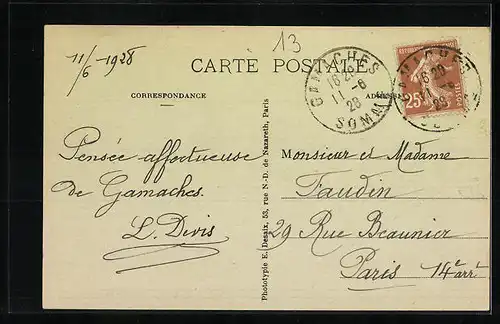 11/6 - 1928
13
CARTE POSTALE
CORRESPONDANCE
GAMACHES
16 20
11 - 6
28
SOMME
16 20
28
25
POSTES
Pensée affectueuse
de Gamaches.
L. Divis
Phototypie E. Desaix, 53, rue N.-D. de Nazareth, Paris
Monsieur et Madame
Faudin
29 Rue Beaunier
Paris 14e arrt